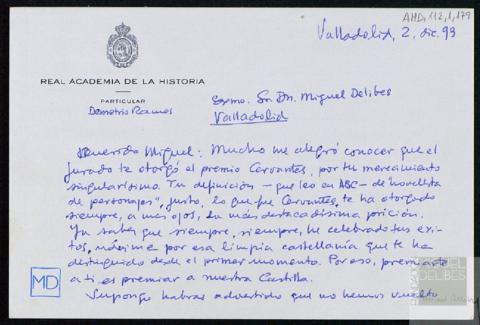 AMD, 112, 1, 179
Valladolid, 2. dic. 93
REAL ACADEMIA DE LA HISTORIA
PARTICULAR
Demetrio Ramos
Excmo. Sr. Dn. Miguel Delibes
Valladolid
Querido Miguel: Mucho me alegró conocer que el
jurado te otorgó el premio Cervantes, por tu merecimiento
singularísimo. Tu definición — que leo en ABC — de "novelista
de personajes", justo, lo que fue Cervantes, te ha otorgado
siempre, a mis ojos, la más destacadísima posición.
Ya sabes que siempre, siempre, he celebrado tus éxi-
tos, máxime por esa limpia castellanía que te ha
distinguido desde el primer momento. Por eso, premiarte
a ti es premiar a nuestra Castilla.
Supongo habrás advertido que no hemos vuelto
MD
MIGUEL
DELIBES